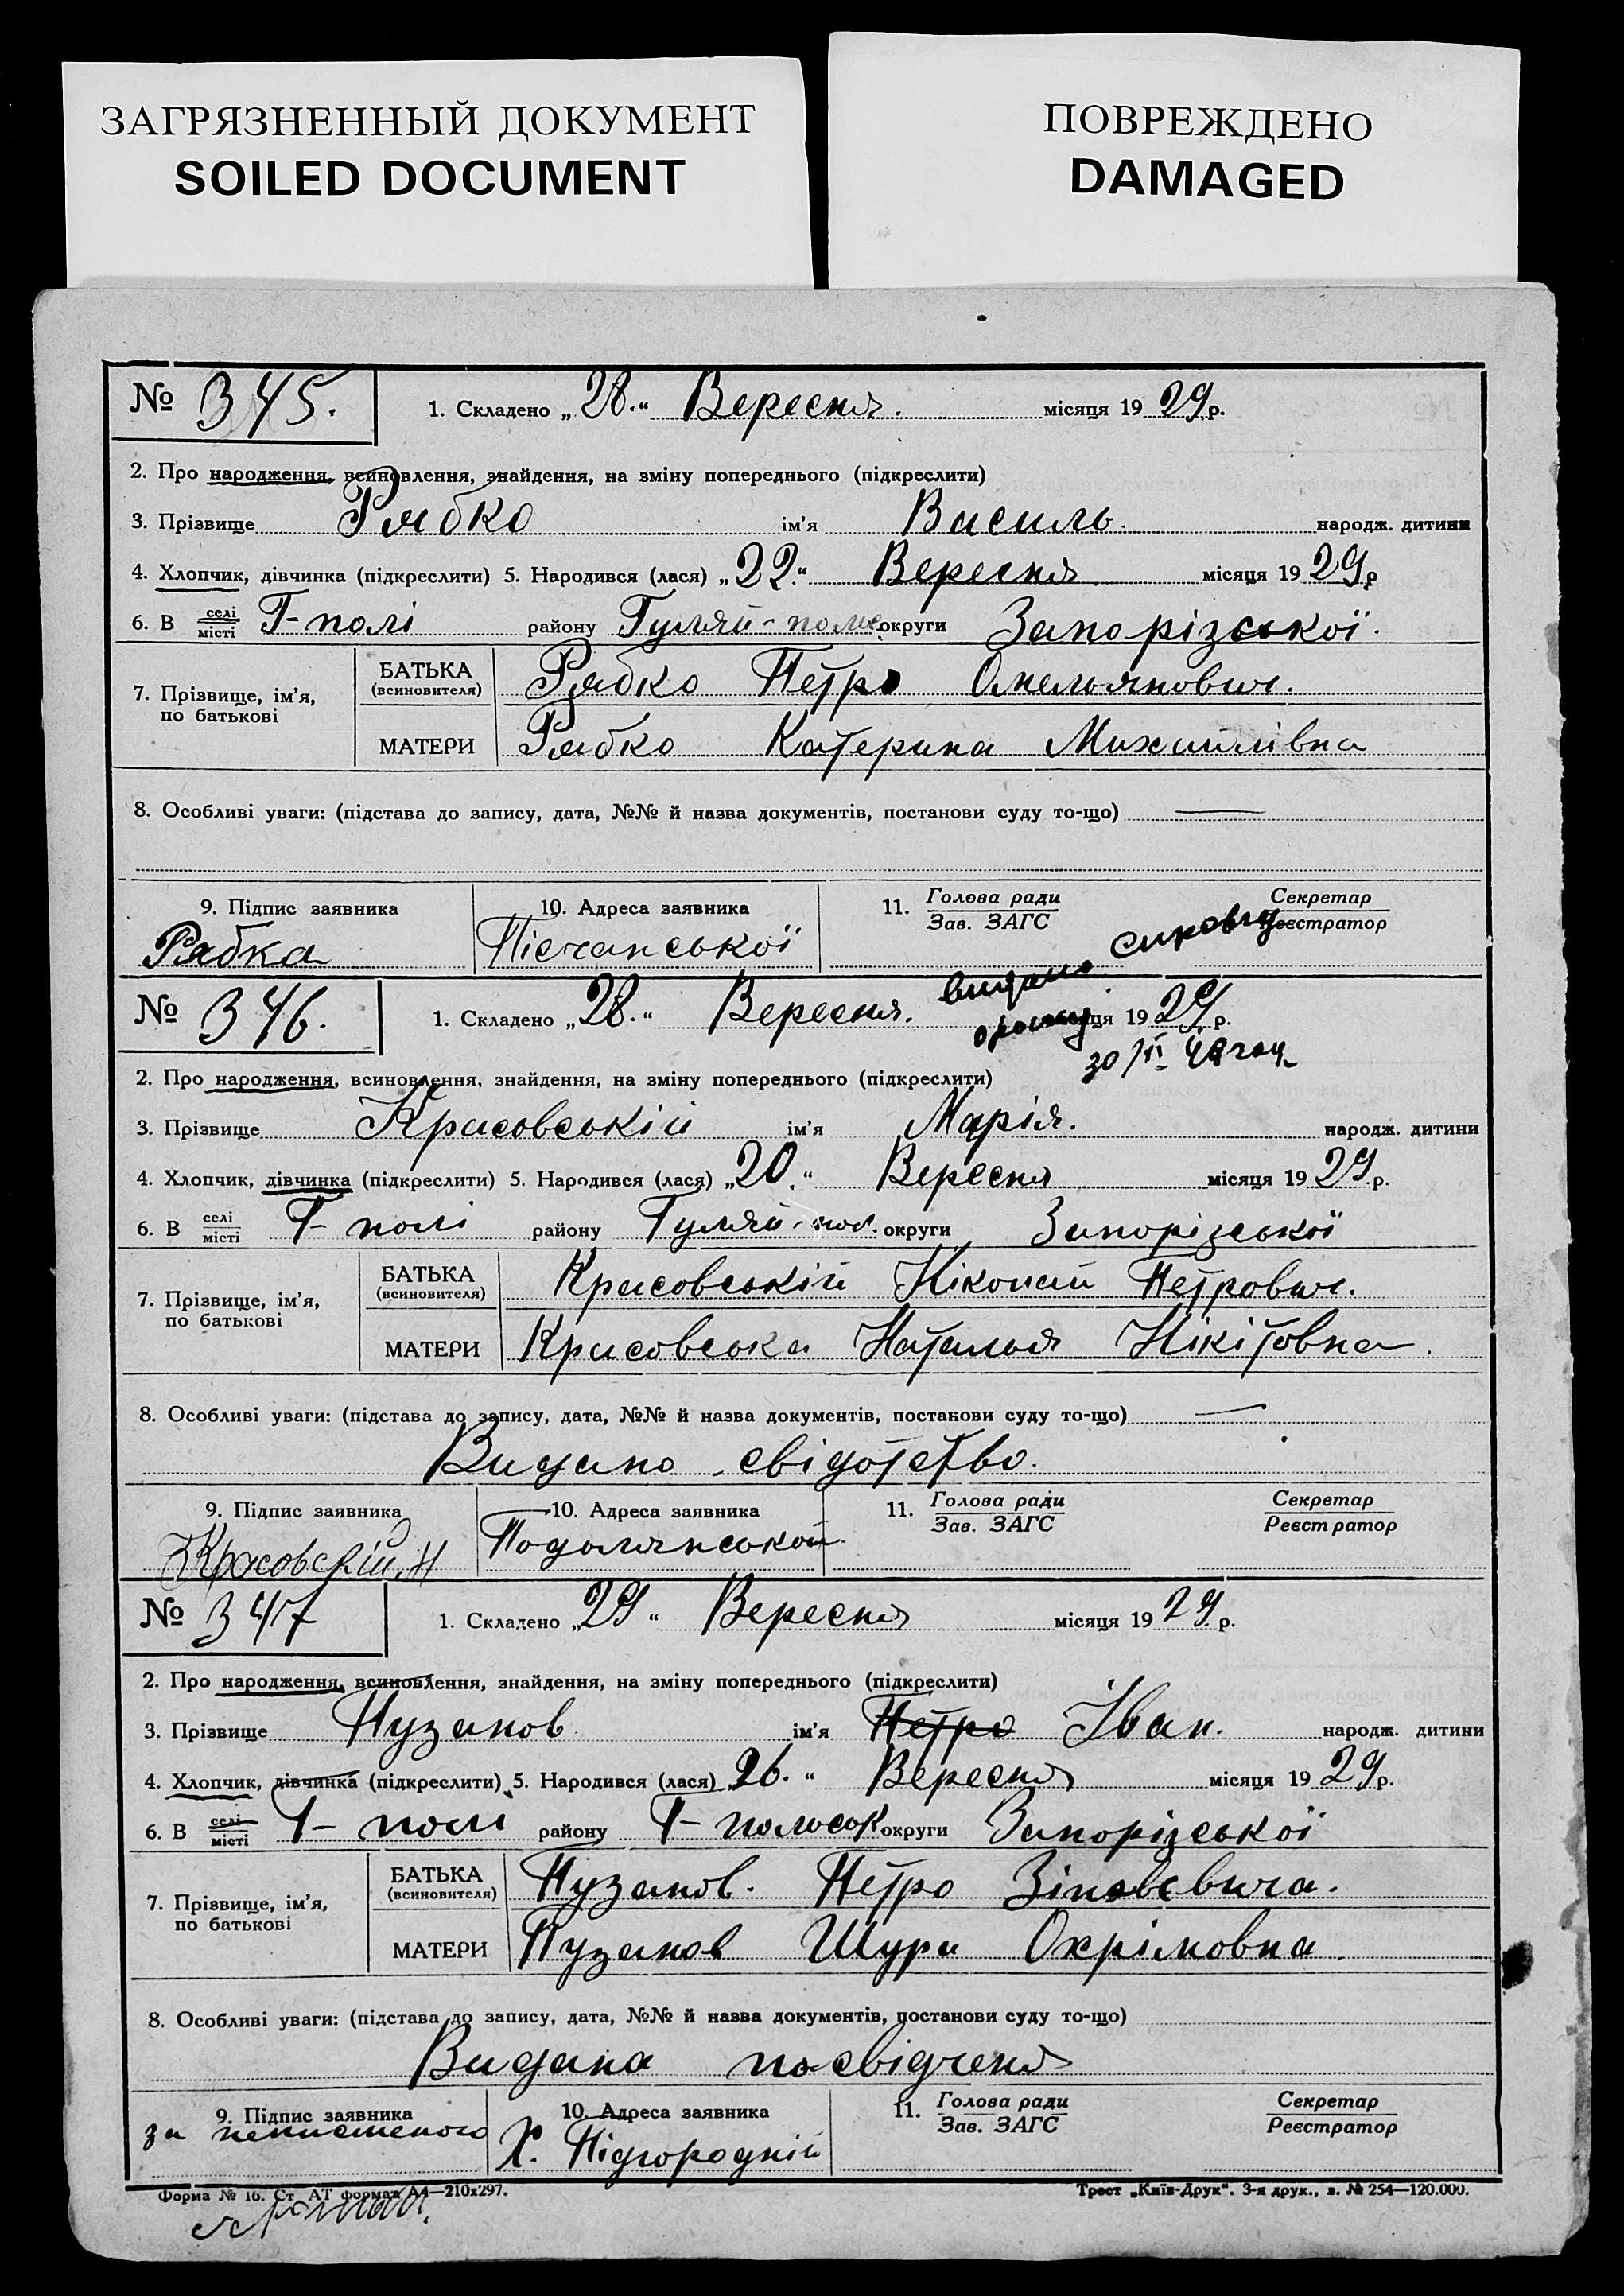 ЗАГРЯЗНЕННЫЙ ДОКУМЕНТ
SOILED DOCUMENT
ПОВРЕЖДЕНО
DAMAGED
№ 345. 1. Складено „28.“ Вересня. місяця 1929 р.
2. Про народження, всиновлення, знайдення, на зміну попереднього (підкреслити)
3. Прізвище Рябко ім'я Василь. народж. дитини
4. Хлопчик, дівчинка (підкреслити) 5. Народився (лася) „22.“ Вересня місяця 1929 р
6. В селі місті Г-полі району Гуляй-поле округи Запорізської.
7. Прізвище, ім'я, по батькові
БАТЬКА (всиновителя) Рябко Петро Омельянович.
МАТЕРИ Рябко Катерина Михайлівна
8. Особливі уваги: (підстава до запису, дата, №№ й назва документів, постанови суду то-що)
9. Підпис заявника 10. Адреса заявника 11. Голова ради Зав. ЗАГС Секретар Реєстратор
Рябка Пісчанської
видано
№ 346. 1. Складено „28.“ Вересня. місяця 1929 р.
30/VI 48 году
2. Про народження, всиновлення, знайдення, на зміну попереднього (підкреслити)
3. Прізвище Красовський ім'я Марія. народж. дитини
4. Хлопчик, дівчинка (підкреслити) 5. Народився (лася) „20.“ Вересня місяця 1929 р.
6. В селі місті Г-полі району Гуляй-пол. округи Запорізської
7. Прізвище, ім'я, по батькові
БАТЬКА (всиновителя) Красовській Ніколай Петрович.
МАТЕРИ Красовська Наталья Нікітовна.
8. Особливі уваги: (підстава до запису, дата, №№ й назва документів, постанови суду то-що)
Видано свідотство.
9. Підпис заявника 10. Адреса заявника 11. Голова ради Зав. ЗАГС Секретар Реєстратор
Красовскій. Н Подолянськой
№ 347 1. Складено „29“ Вересня місяця 1929 р.
2. Про народження, всиновлення, знайдення, на зміну попереднього (підкреслити)
3. Прізвище Пузанов ім'я Петро Іван. народж. дитини
4. Хлопчик, дівчинка (підкреслити) 5. Народився (лася) 26. “ Вересня місяця 1929 р.
6. В селі місті Г-полі району Г-польськ округи Запорізської
7. Прізвище, ім'я, по батькові
БАТЬКА (всиновителя) Пузанов. Петро Зіновєвича.
МАТЕРИ Пузанов Шура Охрімовна
8. Особливі уваги: (підстава до запису, дата, №№ й назва документів, постанови суду то-що)
Видана посвідченя
9. Підпис заявника 10. Адреса заявника 11. Голова ради Зав. ЗАГС Секретар Реєстратор
за неписменого Х. Підгородній
Форма № 16. Ст. АТ формат А4—210х297. Трест „Київ-Друк“. 3-я друк., з. № 254—120.000.